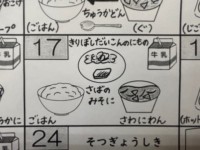 ちゅうかどん
(ごはん)
(ぐ)
牛乳
17
きりぼしだいこんのにもの
牛乳
さばの
みそに
ごはん
さわにわん
24
そつぎょうしき